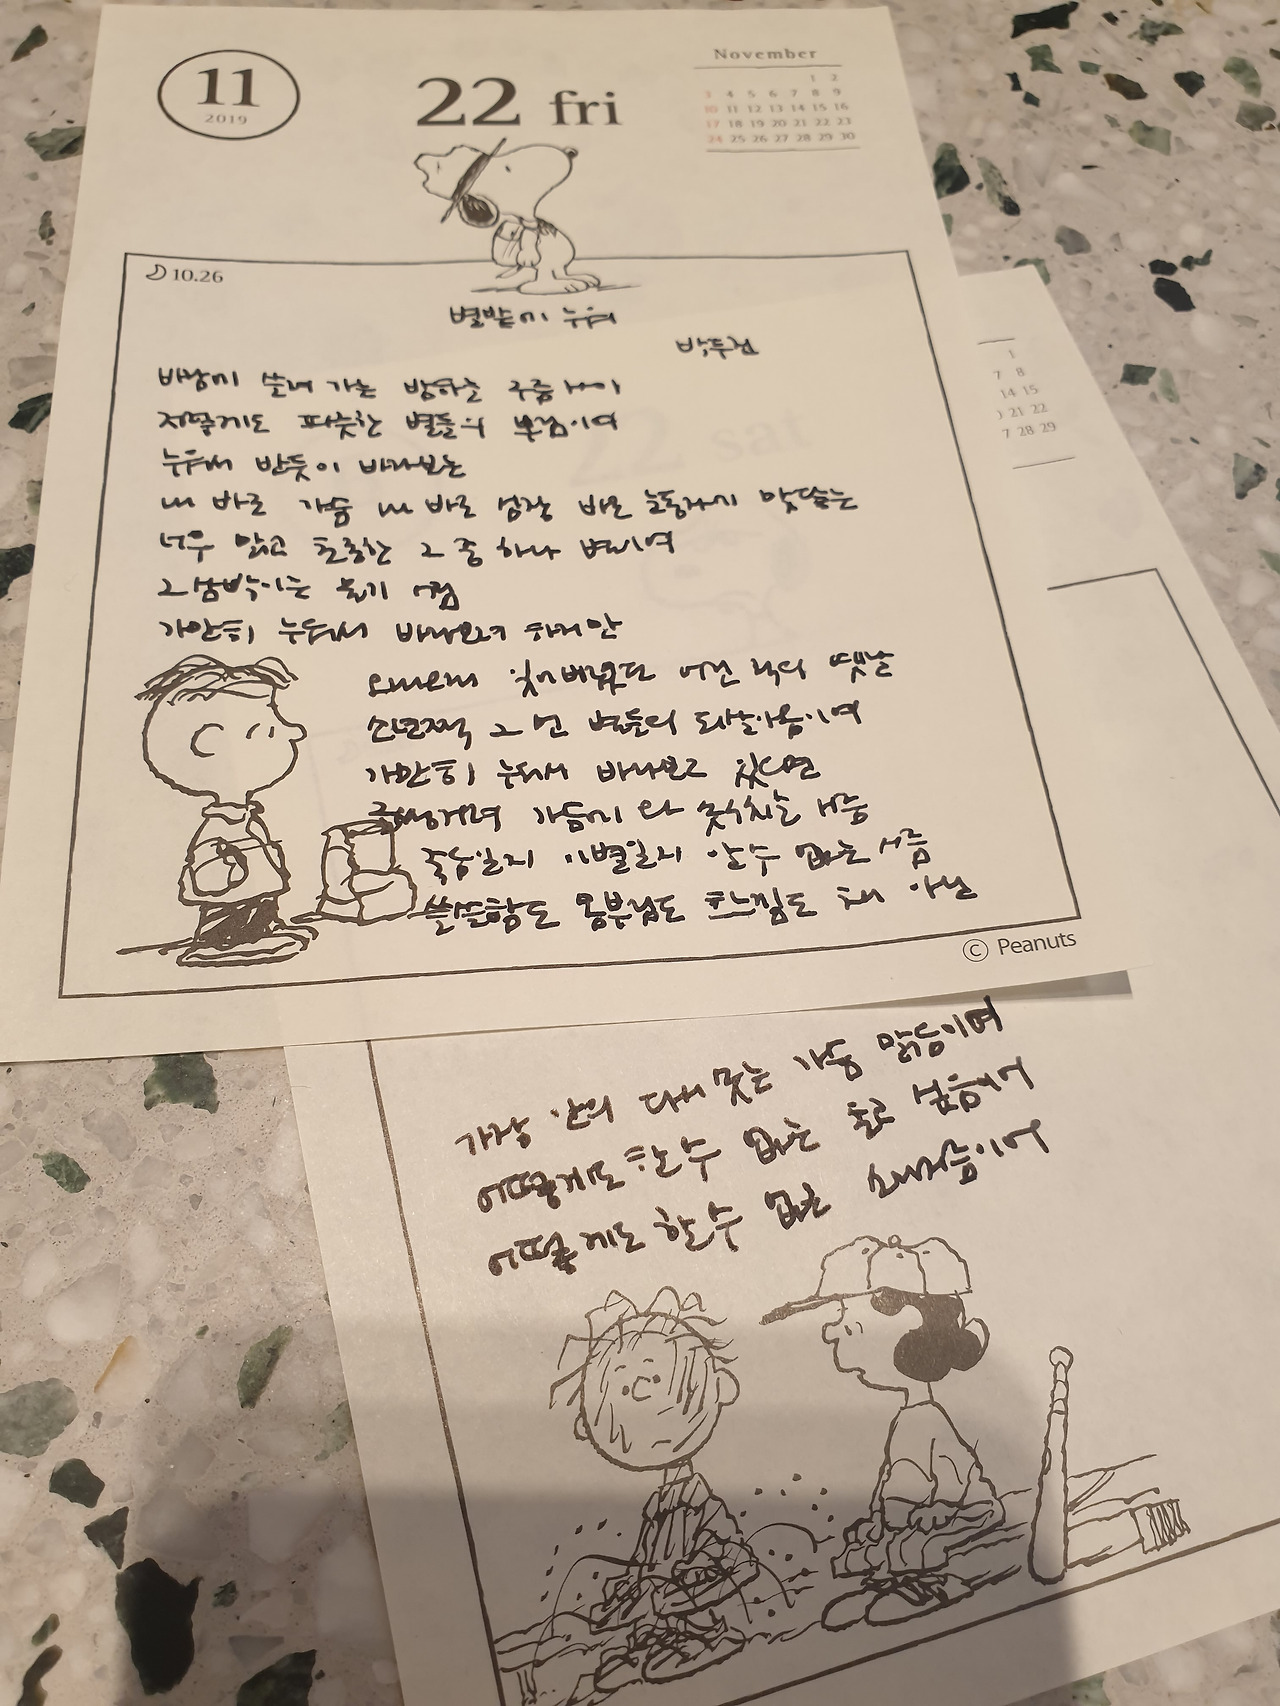 11
2019
22 fri
November
1 2
3 4 5 6 7 8 9
10 11 12 13 14 15 16
17 18 19 20 21 22 23
24 25 26 27 28 29 30
10.26
별밭에 누워
박두진
바람에 쓸려 가는 밤하늘 구름 사이
저렇게도 파릇한 별들의 뿌림이여
누워서 반듯이 바라보는
내 바로 가슴 내 바로 심장 바로 눈동자에 맞닿는
너무 맑고 초롱한 그 중 하나 별이여
그 삼빡이는 물기 어림
가만히 누워서 바라보려 하지만
오래오래 잊어버렸던 어린 적의 옛날
소년쩍 그 먼 별들의 되살아옴이여
가만히 누워서 바라보고 있으면
글썽거려 가슴에 와 솟구치는 시름
죽음일지 이별일지 알 수 없는 시름
쓸쓸함도 몸부림도 흐느낌도 채 아닌
© Peanuts
1
7 8
14 15
21 22
7 28 29
가장 안의 다시 솟는 가슴 맑음이여
어떻게도 할 수 없는 울고 싶음이여
어떻게도 할 수 없는 소리지름이여